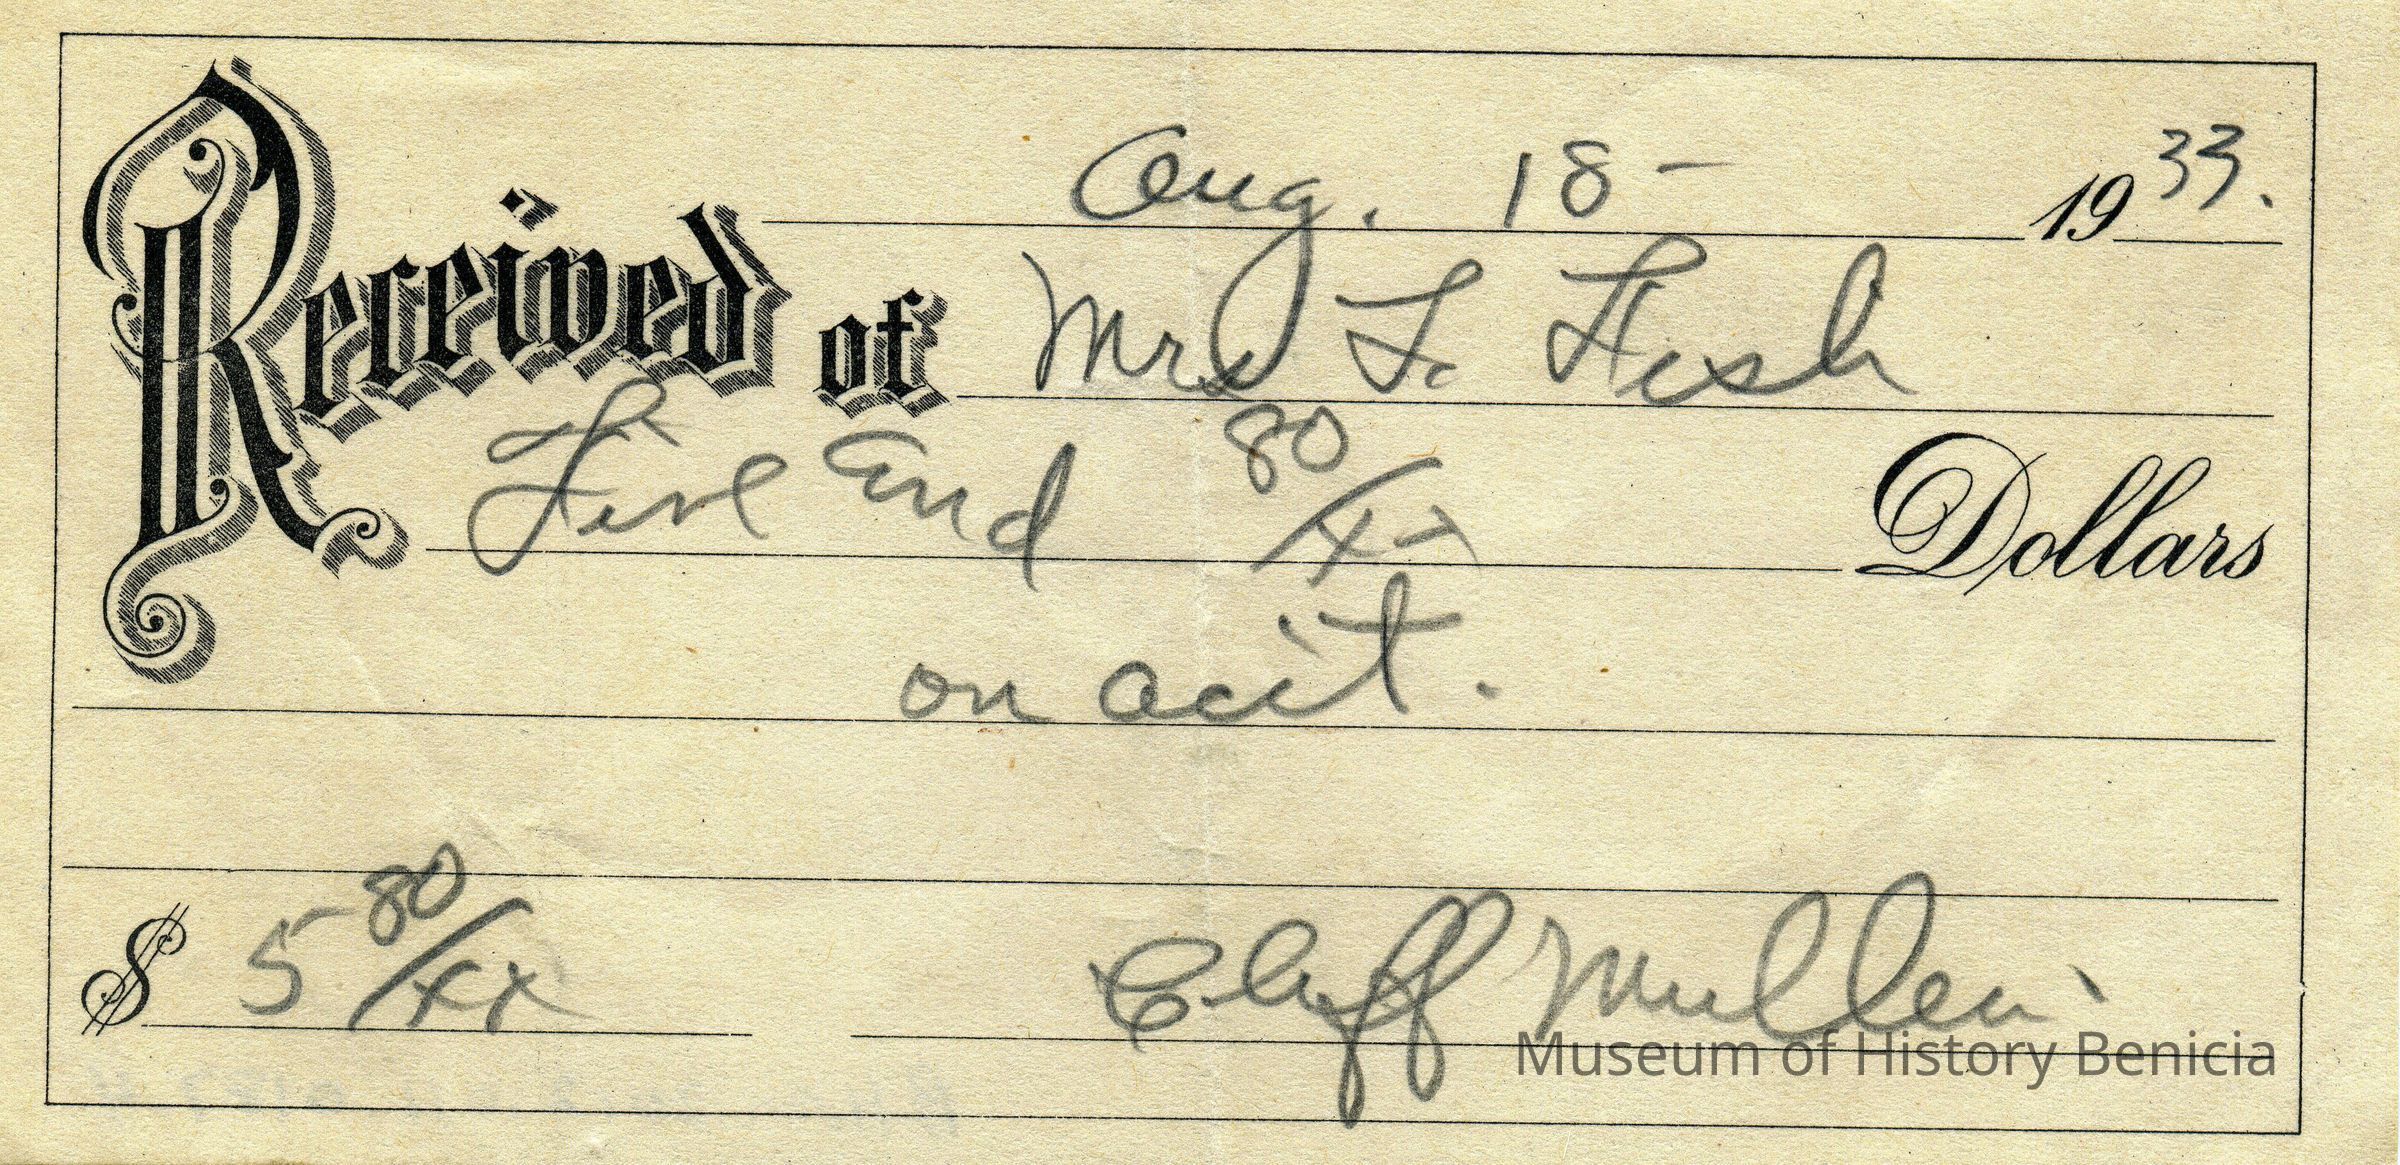 Aug. 18- 1933.
Received of Mrs F. Fish
Five and 80/xx Dollars
on acc't.
$ 5 80/xx Cliff Mullen
Museum of History Benicia